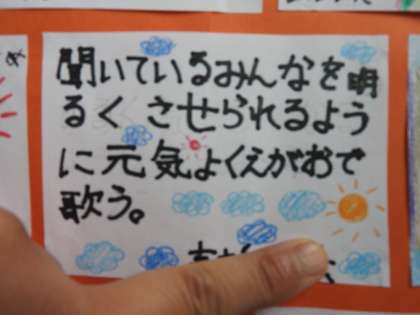 聞いているみんなを明
るくさせられるよう
に元気よくえがおで
歌う。